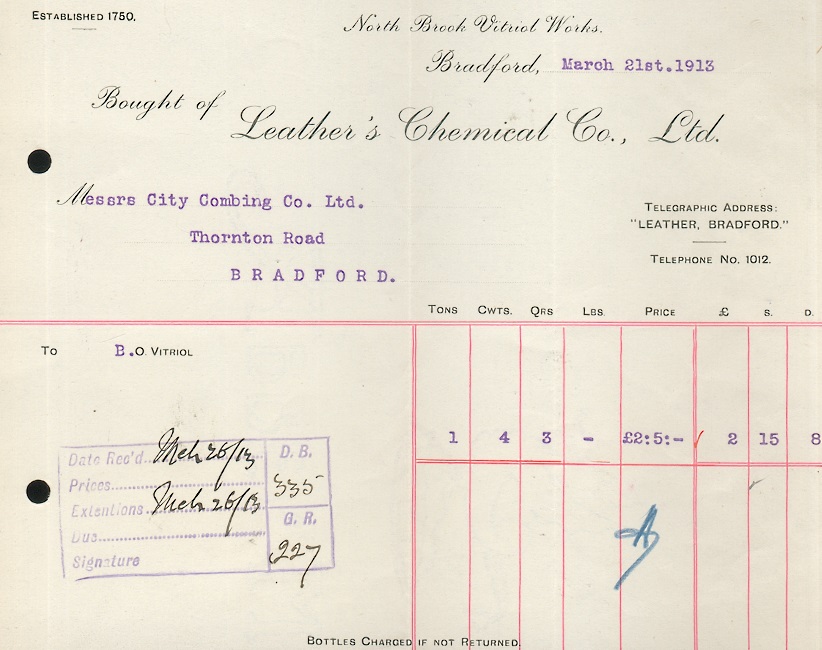 ESTABLISHED 1750.
North Brook Vitriol Works.
Bradford, March 21st.1913
Bought of
Leather's Chemical Co., Ltd.
Messrs City Combing Co. Ltd.
Thornton Road
BRADFORD.
TELEGRAPHIC ADDRESS:
"LEATHER, BRADFORD."
TELEPHONE No. 1012.
TONS CWTS. QRS LBS. PRICE £ S. D.
To B.O. VITRIOL
1 4 3 - £2:5:- 2 15 8
Date Rec'd. Mch 26/13 D. B.
Prices 335
Extentions Mch 26/13 G. R.
Due
Signature 227
BOTTLES CHARGED IF NOT RETURNED.